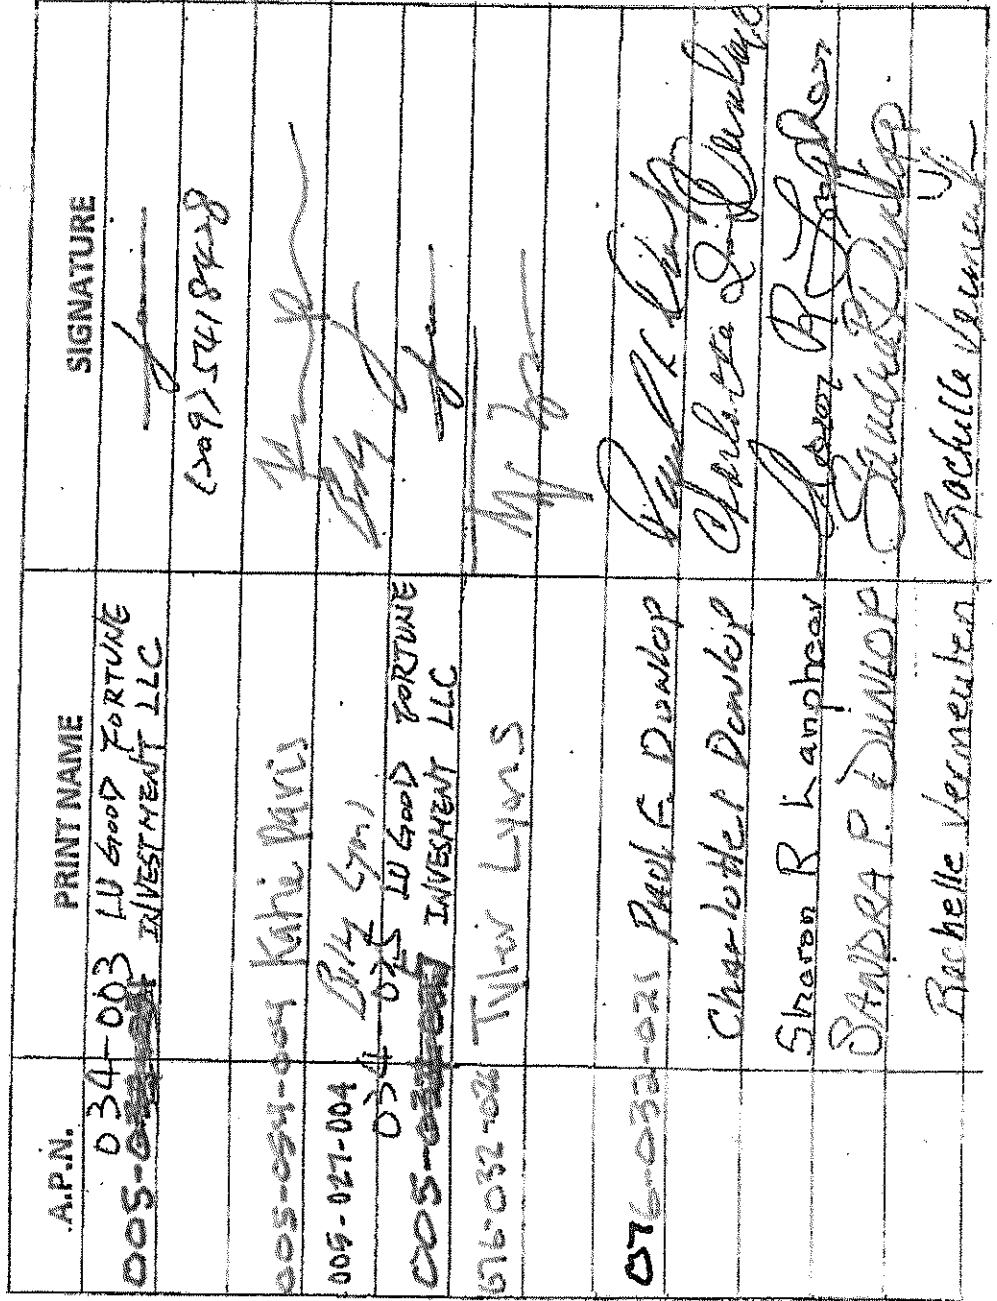 A.P.N. PRINT NAME SIGNATURE
034-003 LU GOOD FORTUNE
005- INVESTMENT LLC
(209) 5418428
005-054-004 Katie Paris
005-027-004 Billy Lyons Billy
034-025 LU GOOD FORTUNE
005- INVESMENT LLC
076-032-026 Tyler Lyons
076-032-021 PAUL E. DUNLOP
Charlotte L Dunlop Charlotte L. Dunlap
Sharon R Lanphear Sharon R Lanphear
SANDRA P. DUNLOP Sandra P. Dunlop
Rachelle Vermeulen Rachelle Vermeul